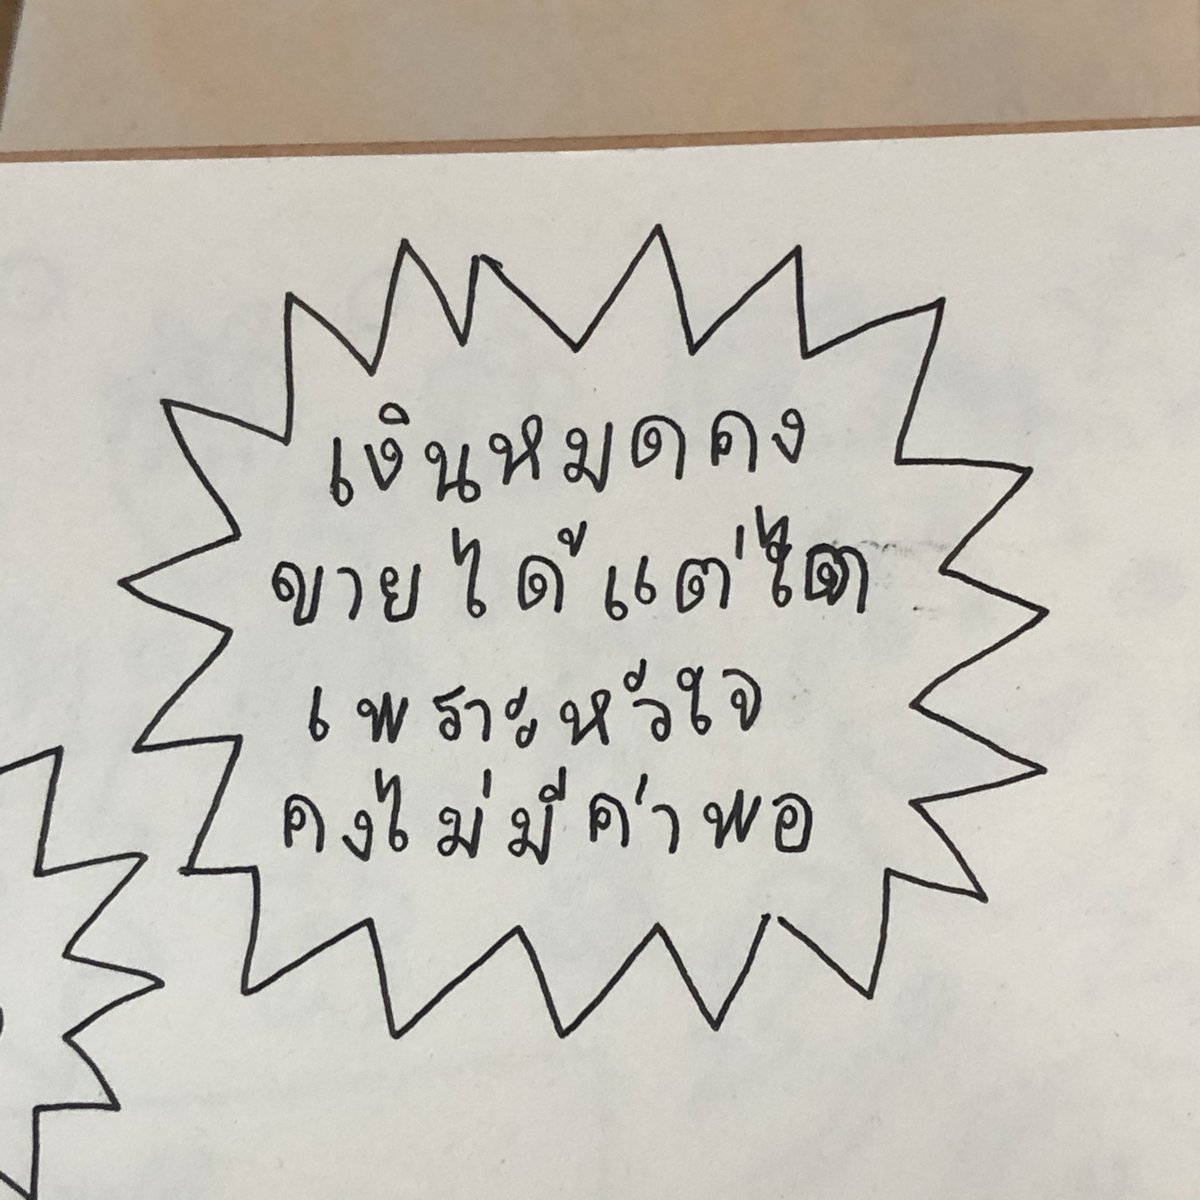 เงินหมดคง
ขายได้แต่ไต
เพราะหัวใจ
คงไม่มีค่าพอ